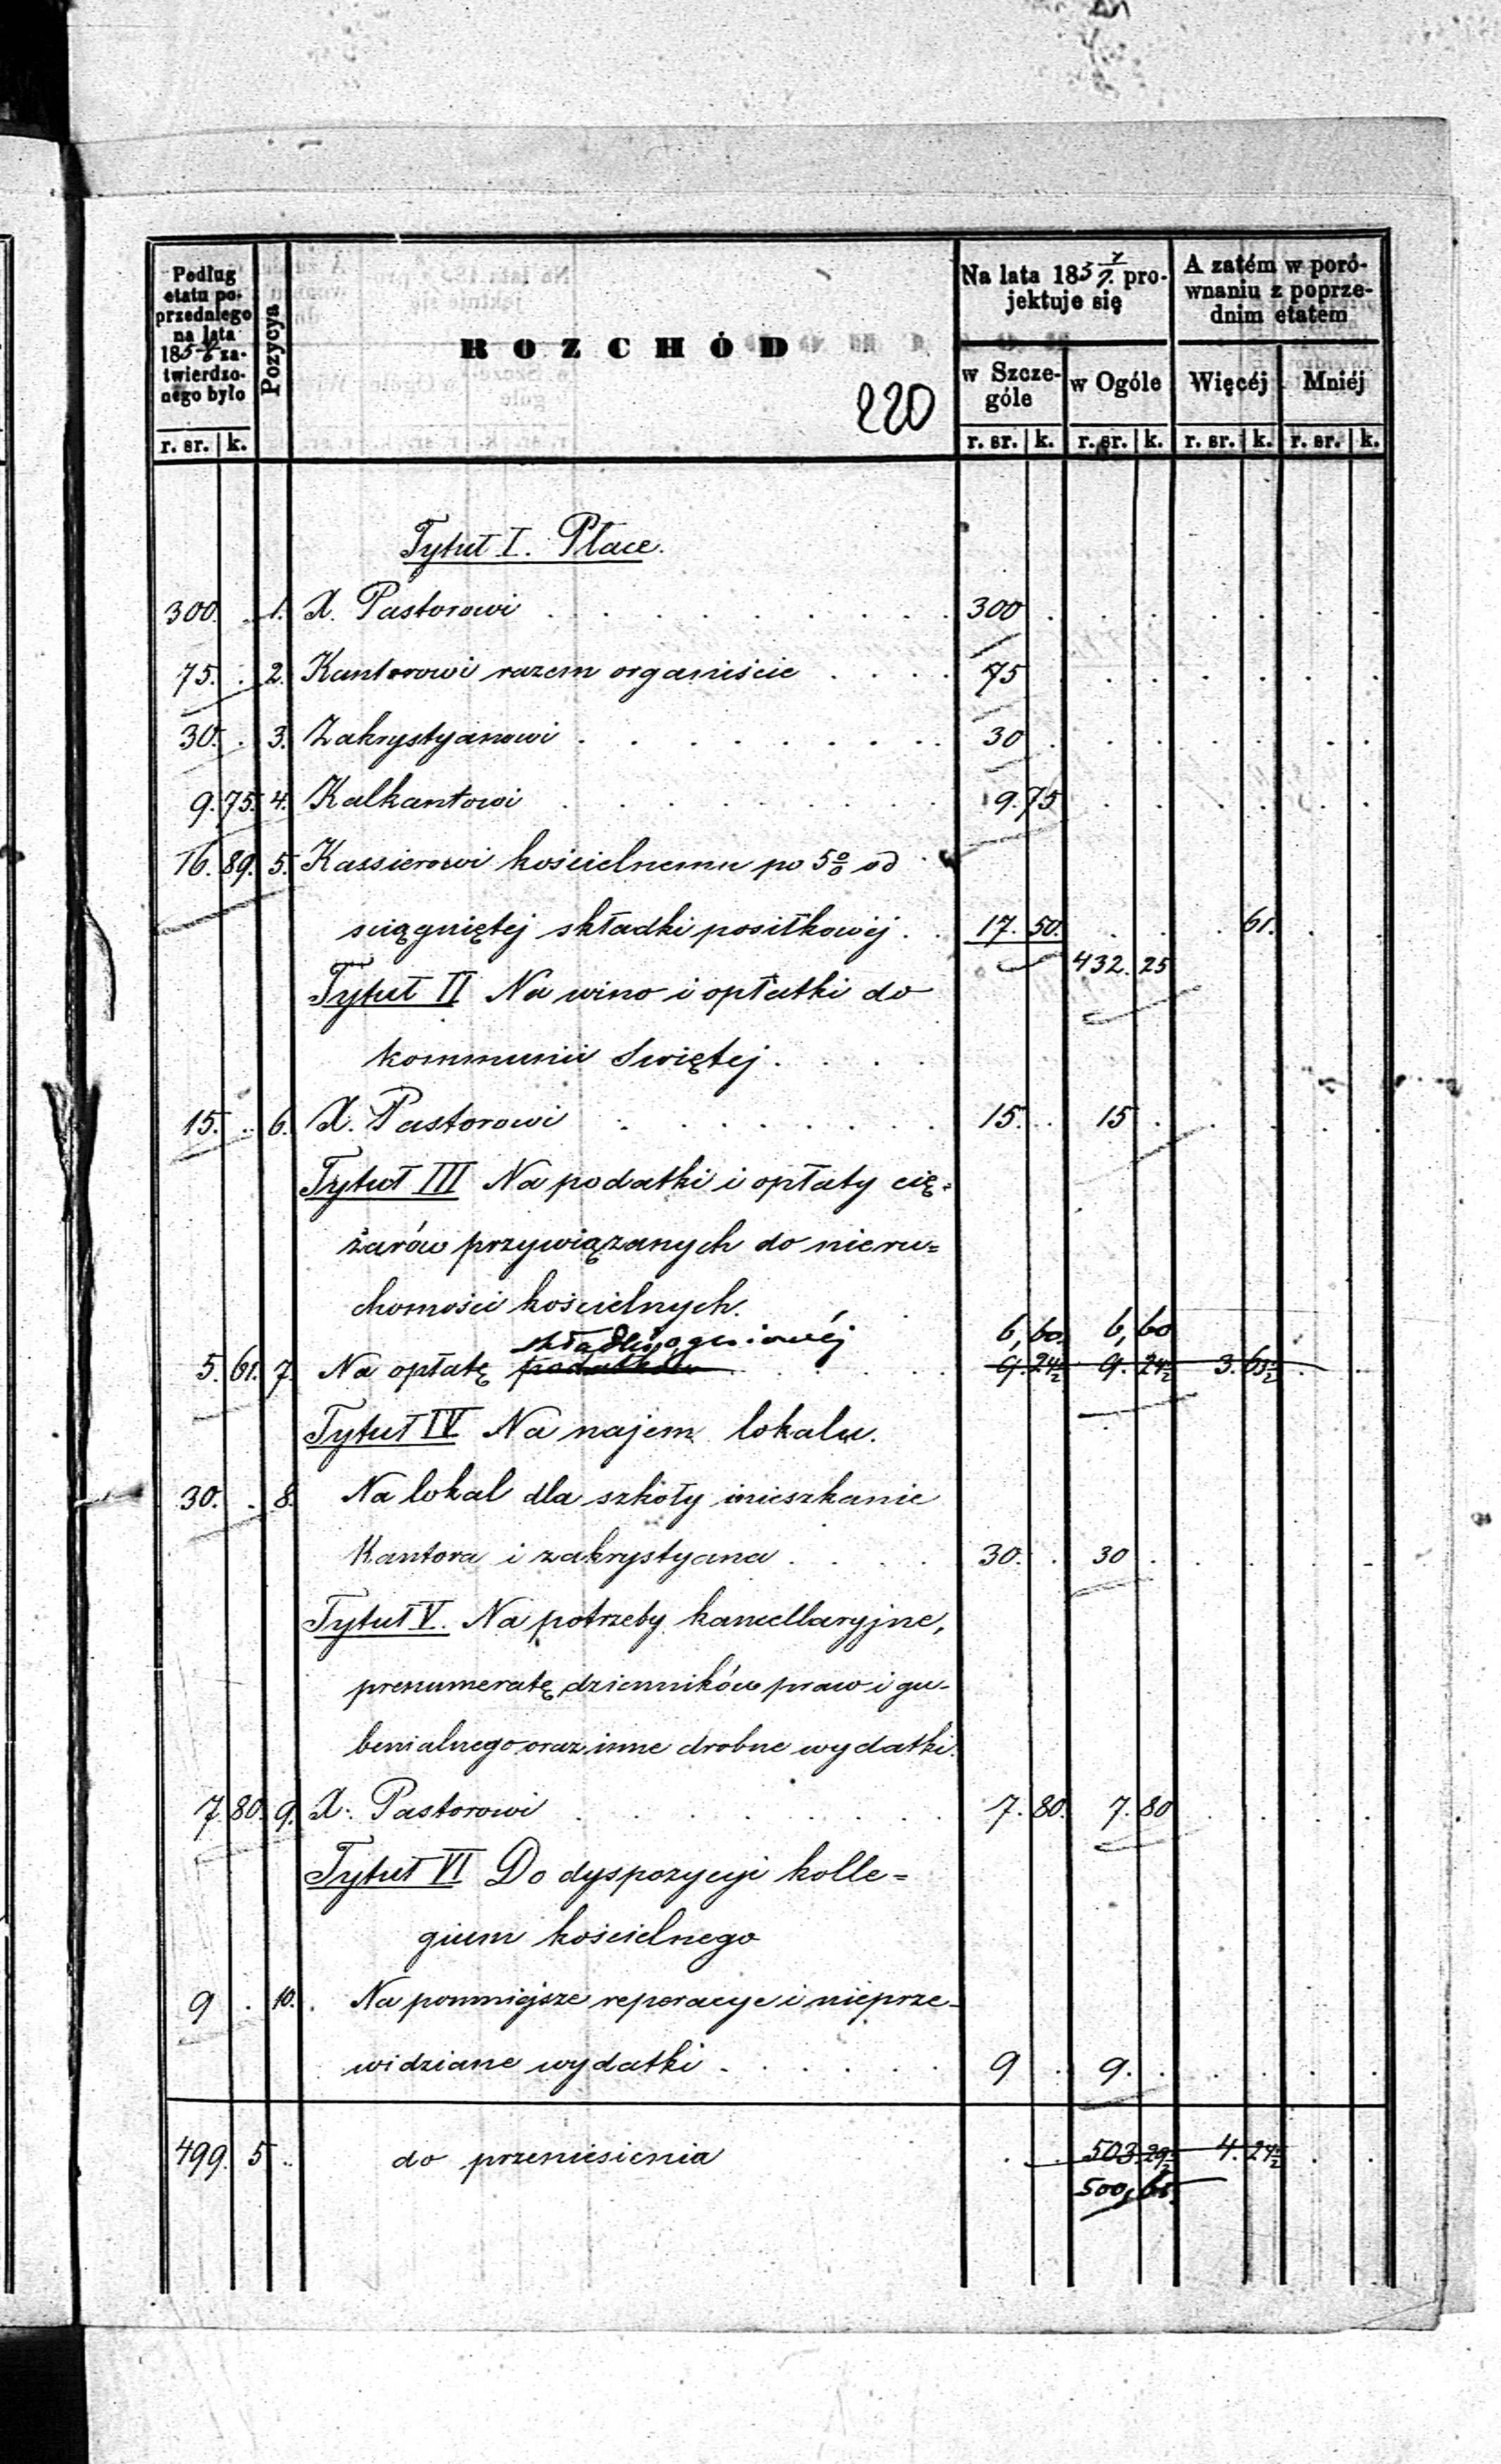 Podług etatu poprzedniego na lata 185 zatwierdzonego było
Pozycya
ROZCHÓD
220
Na lata 185 projektuje się
A zatém w porównaniu z poprzednim etatem
w Szczególe
w Ogóle
Więcéj
Mniéj
r. sr. k. r. sr. k. r. sr. k. r. sr. k. r. sr. k.
Tytuł I. Płace.
300. . 1. X. Pastorowi 300
75. . 2. Kantorowi razem organiście 75
30. . 3. Zakrystyanowi 30
9. 75. 4. Kalkantowi 9. 75
16. 89. 5. Kassierowi kościelnemu po 5% od
sciągniętej składki posiłkowéj 17. 50. 61.
432. 25
Tytuł II Na wino i opłatki do
kommunii Swiętej
15. . 6. X. Pastorowi 15. 15
Tytuł III Na podatki i opłaty cię=
żarów przywiązanych do nieru=
chomości kościelnych.
składki ogniowéj 6, 60. 6, 60
5. 61. 7. Na opłatę podatków 9. 24½ 9. 24½ 3. 63½
Tytuł IV Na najem lokalu.
30. . 8. Na lokal dla szkoły i mieszkanie
Kantora i zakrystyana 30. 30
Tytuł V. Na potrzeby kancellaryjne,
prenumeratę dzienników praw i gu-
bernialnego oraz inne drobne wydatki.
7. 80. 9. X. Pastorowi 7. 80. 7. 80
Tytuł VI Do dyspozycyi kolle=
gium kościelnego
9 . 10. Na pomniejsze reperacye i nieprze-
widziane wydatki 9 9.
499. 5 do przeniesienia 503. 29½ 4. 24½
500, 65.